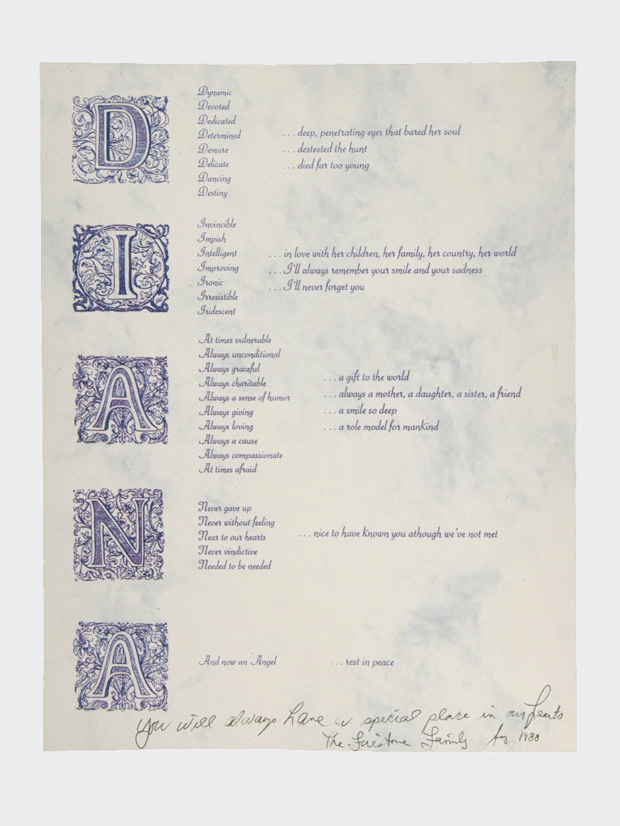 D
Dynamic
Devoted
Dedicated
Determined
Demure
Delicate
Dancing
Destiny
. . . deep, penetrating eyes that bared her soul
. . . destested the hunt
. . . died far too young
I
Invincible
Impish
Intelligent
Improving
Ironic
Irresistible
Iridescent
. . . in love with her children, her family, her country, her world
. . . I'll always remember your smile and your sadness
. . . I'll never forget you
A
At times vulnerable
Always unconditional
Always graceful
Always charitable
Always a sense of humor
Always giving
Always loving
Always a cause
Always compassionate
At times afraid
. . . a gift to the world
. . . always a mother, a daughter, a sister, a friend
. . . a smile so deep
. . . a role model for mankind
N
Never gave up
Never without feeling
Near to our hearts
Never vindictive
Needed to be needed
. . . nice to have known you athough we've not met
A
And now an Angel
. . . rest in peace
you will always have a special place in our
The Family